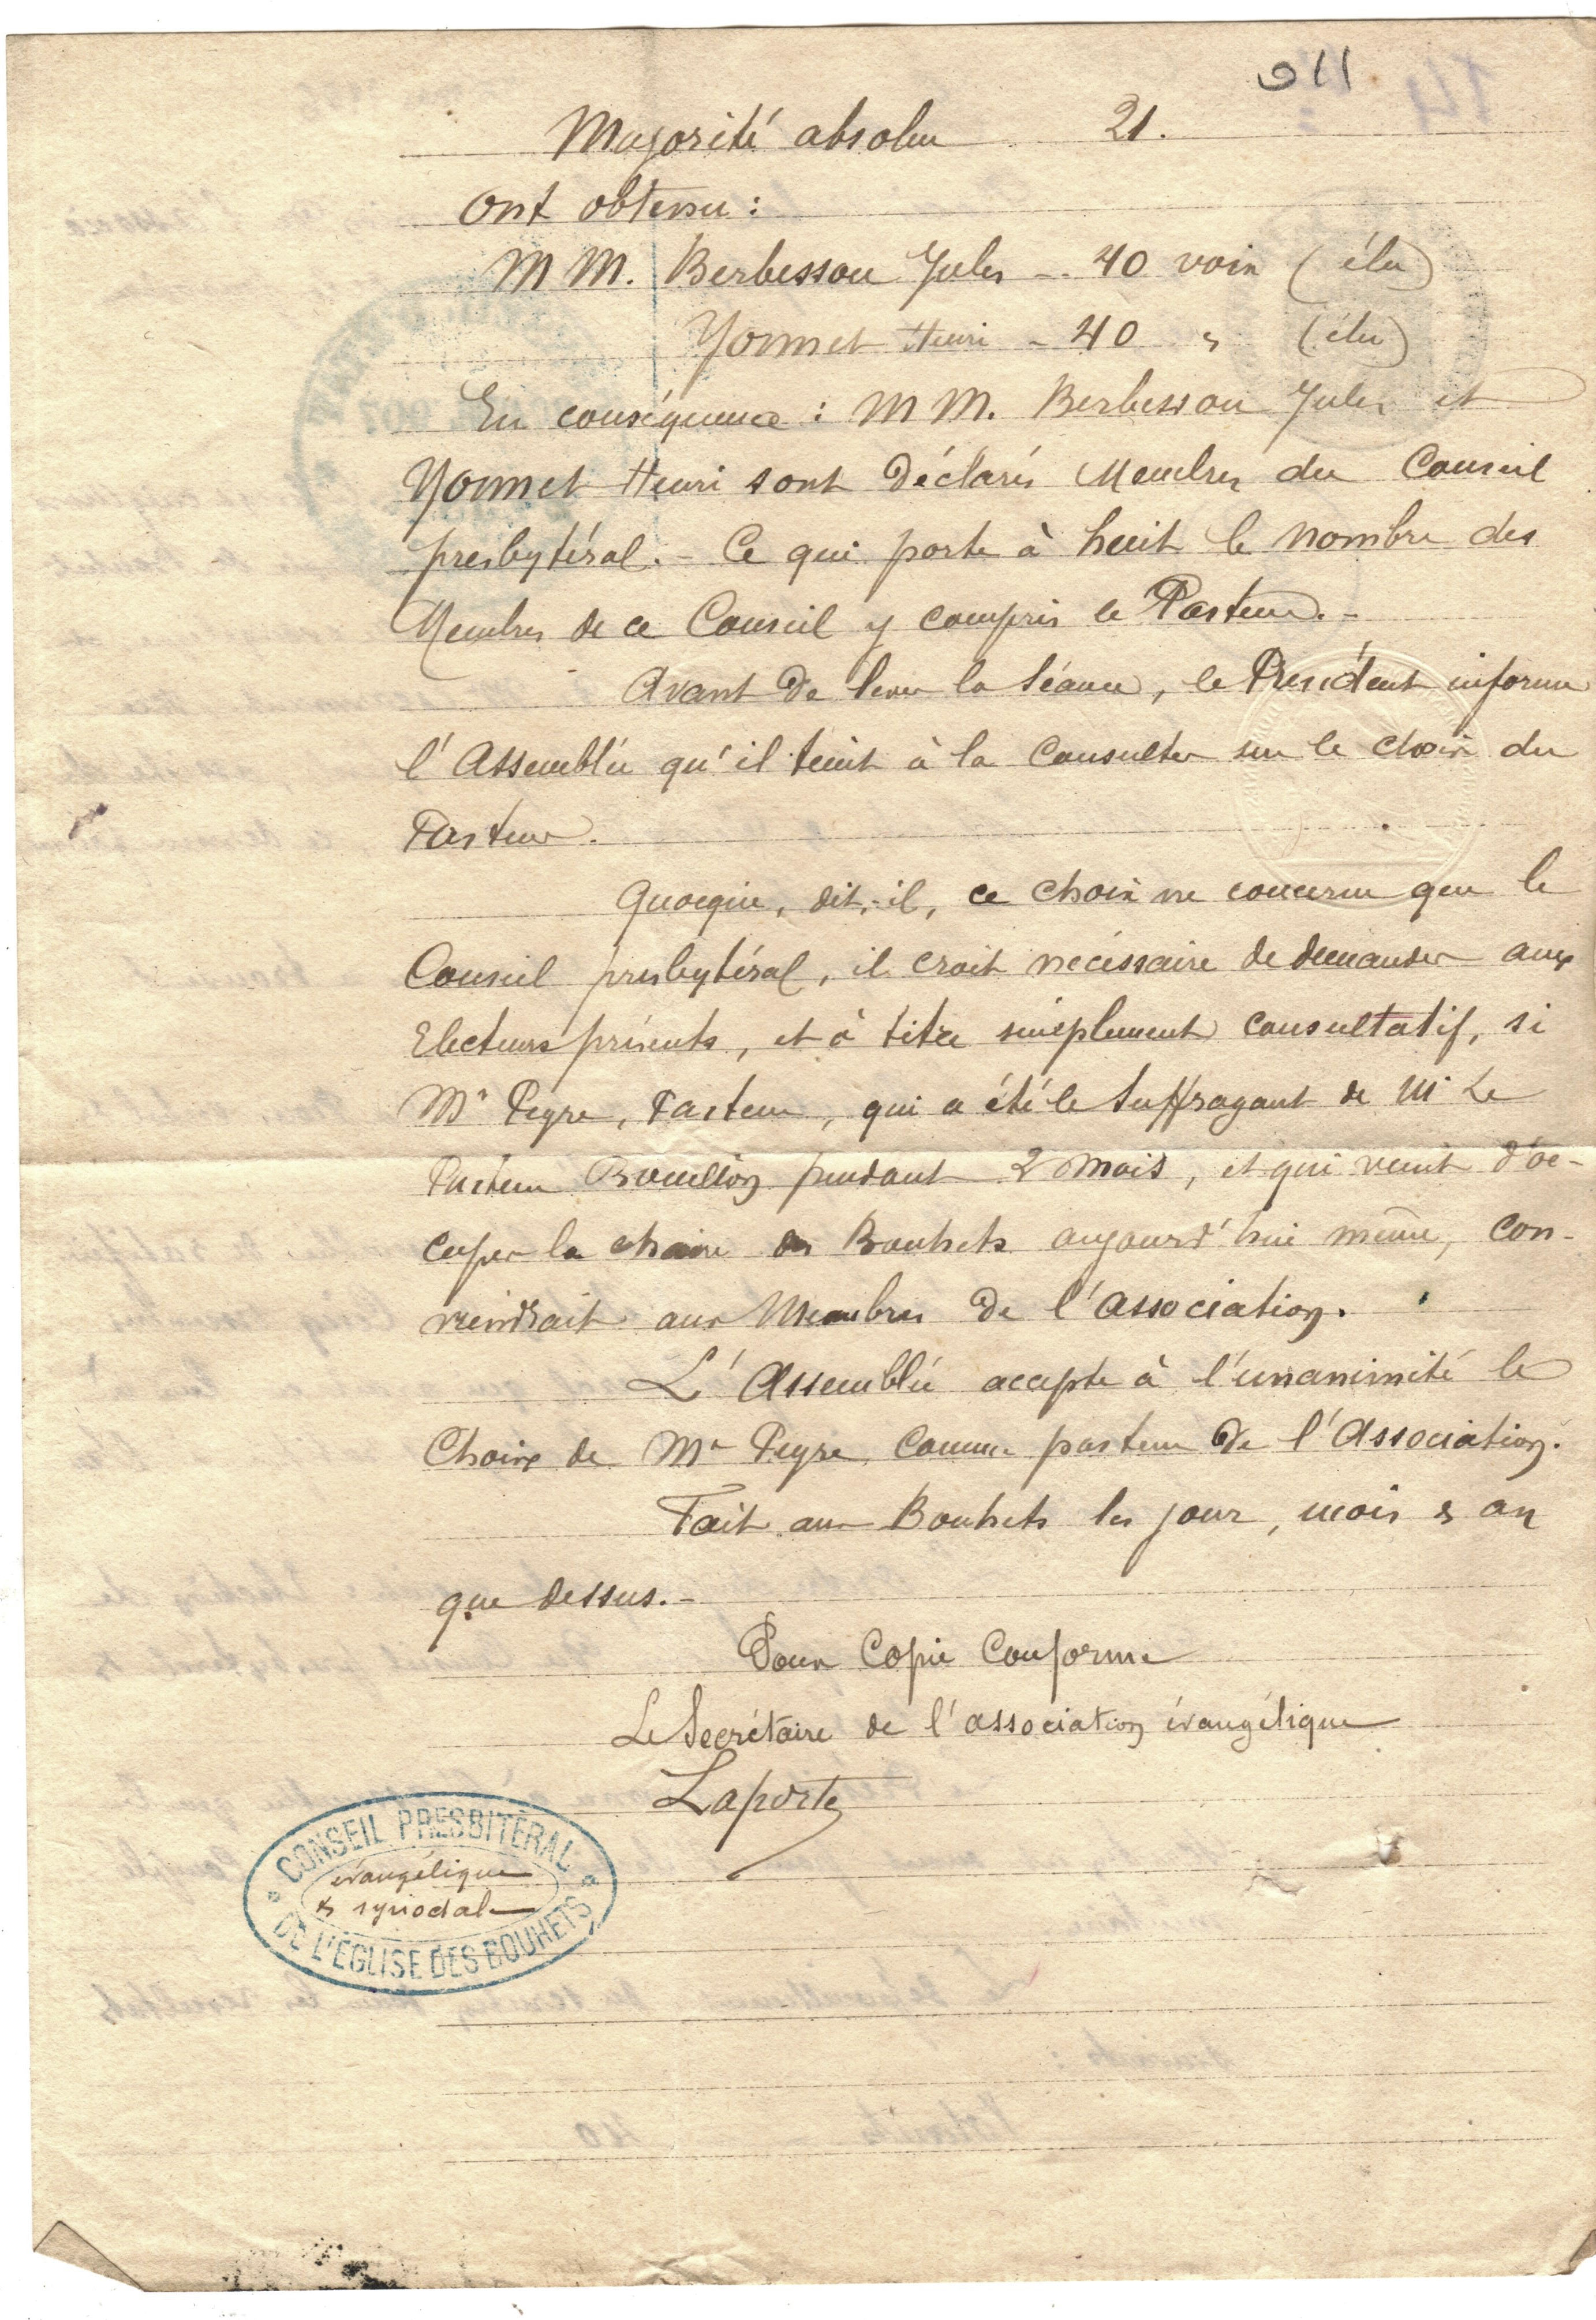 911
Majorité absolue 21.
Ont obtenu :
M M. Berbessou Jules - 40 voix (élu)
Yonnet Henri - 40 " (élu)
En conséquence : M M. Berbessou Jules et
Yonnet Henri sont déclarés Membres du Conseil
presbytéral. - Ce qui porte à huit le nombre des
Membres de ce Conseil y compris le Pasteur. -
Avant de lever la séance, le Président informe
l'Assemblée qu'il tient à la consulter sur le choix du
Pasteur.
Quoique, dit-il, ce choix ne concerne que le
Conseil presbytéral, il croit nécessaire de demander aux
Electeurs présents, et à titre simplement consultatif, si
Mr Peyre, Pasteur, qui a été le Suffragant de Mr Le
Pasteur Brouillon pendant 2 mois, et qui vient d'oc-
cuper la chaire des Bouhets aujourd'hui même, con-
viendrait aux Membres de l'Association.
L'Assemblée accepte à l'unanimité le
Choix de Mr Peyre, comme pasteur de l'Association.
Fait aux Bouhets les jour, mois & an
que dessus. -
Pour Copie Conforme
Le Secrétaire de l'association évangélique
Laporte
CONSEIL PRESBITÉRAL
évangélique
& synodal
DE L'ÉGLISE DES BOUHETS